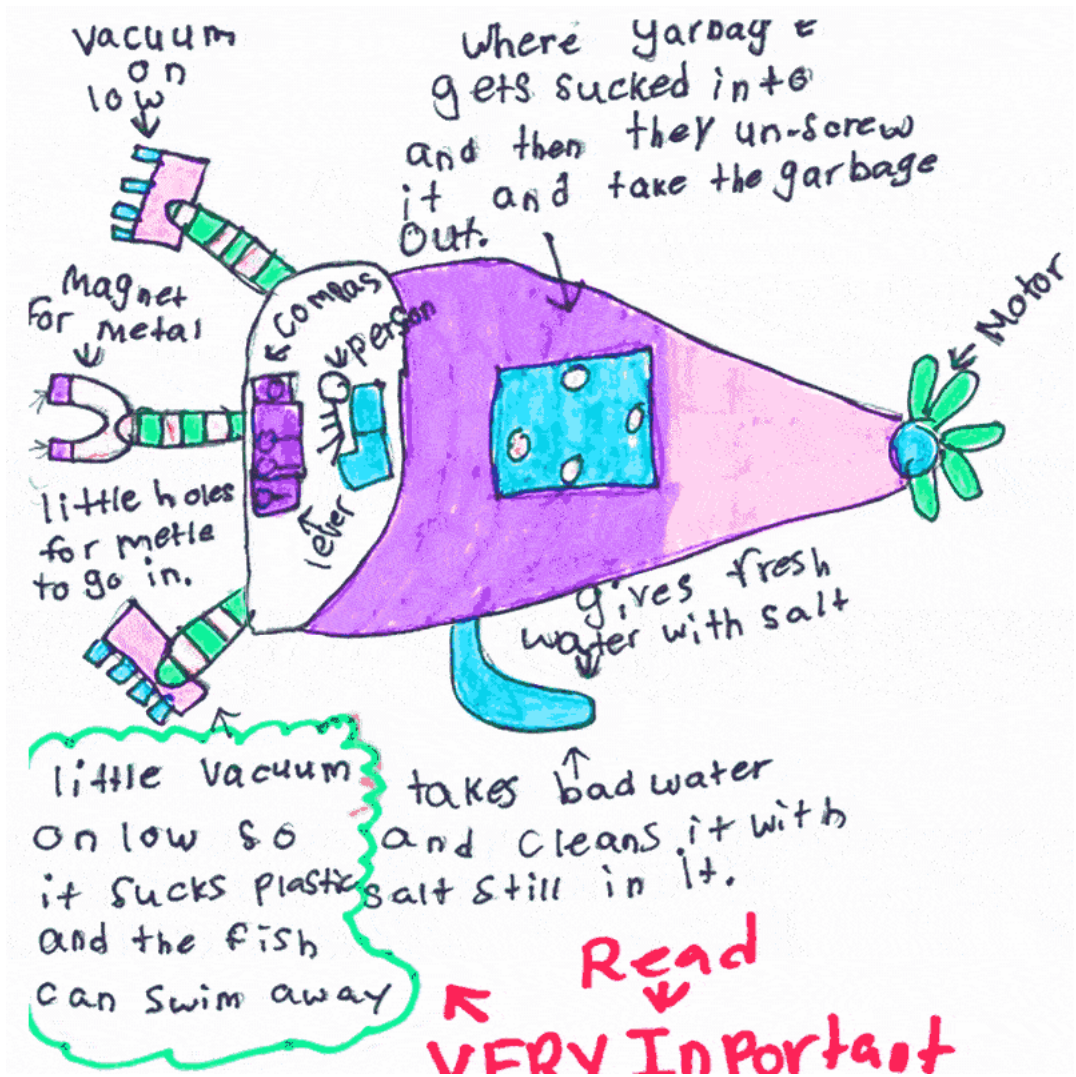 vacuum
on
low
Where garbage
gets sucked into
and then they un-screw
it and take the garbage
out.
Magnet
For metal
compas
person
Motor
little holes
for metle
to go in.
lever
gives fresh
water with salt
little vacuum
on low so
it sucks plastic
and the fish
can swim away
takes bad water
and cleans it with
salt still in it.
Read
VERY InPortant